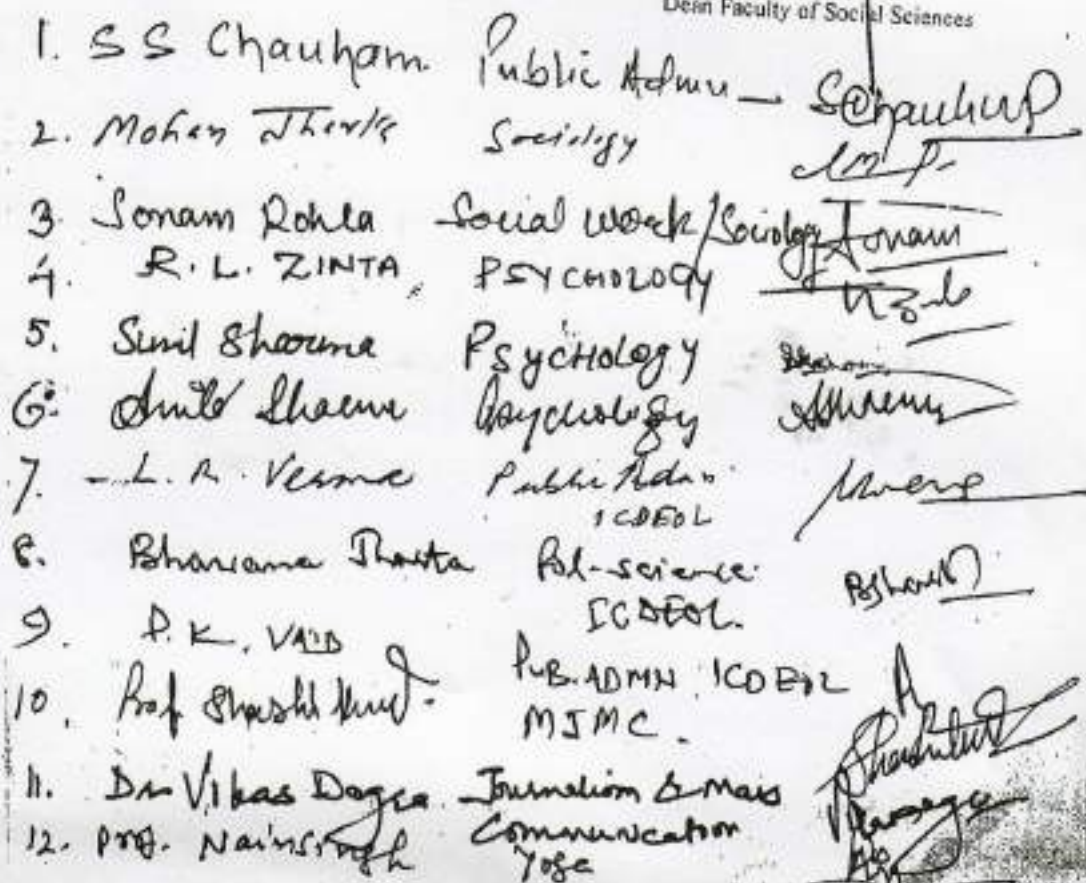 Dean Faculty of Social Sciences
1. S S Chauham Public Admn - SChauhan
2. Mohan Jharta Sociology
3. Sonam Rohla Social Work/Sociology Sonam
4. R. L. ZINTA, PSYCHOLOGY
5. Sunil Sharma Psychology Sharma
6. Anita Sharma Psychology ASharma
7. L. R. Verma Public Admn
ICDEOL
8. Bhawana Jharta Pol-science
ICDEOL.
9. P. K. VAID
PUB. ADMN ICDEOL
10. Prof Shashi Kant MJMC.
11. Dr Vikas Dogra Journalism & Mass
Communication
12. Prof. Nainsingh Yoga